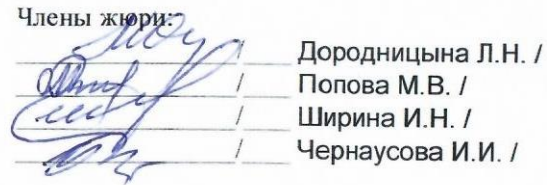 Члены жюри:
/ Дородницына Л.Н. /
/ Попова М.В. /
/ Ширина И.Н. /
/ Чернаусова И.И. /